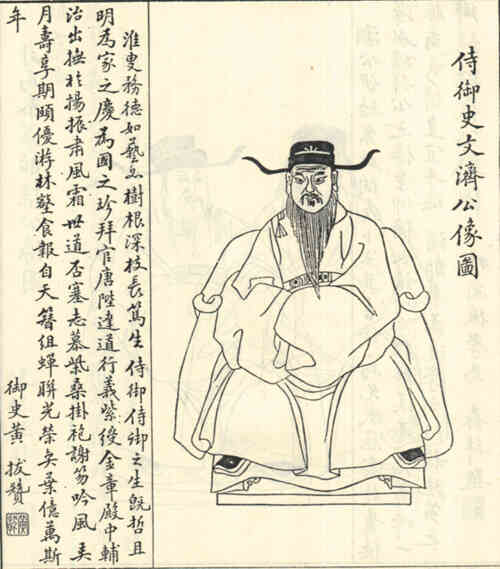 侍御史文濟公像圖
淮叟務德如藝樹根深枝長篤生侍御侍御之生既哲且
明為家之慶為國之珍拜官唐陛達道行義紫綬金章殿中輔
治出撫扵揚振肅風霜世道否塞志慕柴桑掛袍謝笏吟風弄
月壽享期頤優游林壑食報自天簪組蟬聯光榮奕葉億萬斯
年
御史黃 拔贊